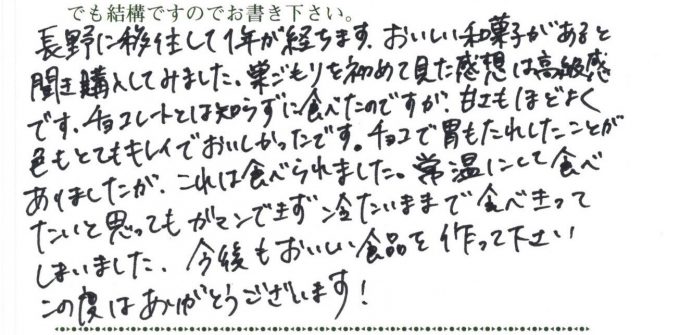 でも結構ですのでお書き下さい。
長野に移住して1年が経ちます。おいしい和菓子があると
聞き購入してみました。巣ごもりを初めて見た感想は高級感
です。チョコレートとは知らずに食べたのですが、甘さもほどよく
色もとてもキレイでおいしかったです。チョコで胃もたれしたことが
ありましたが、これは食べられました。常温にして食べ
たいと思ってもガマンできず冷たいままで食べきって
しまいました。今後もおいしい食品を作って下さい
この度はありがとうございます！